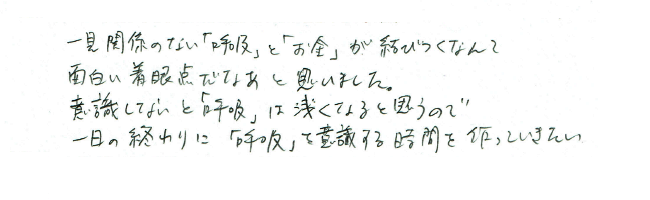 一見関係のない「呼吸」と「お金」が結びつくなんて
面白い着眼点だなあと思いました。
意識してないと「呼吸」は浅くなると思うので
一日の終わりに「呼吸」を意識する時間を作っていきたい